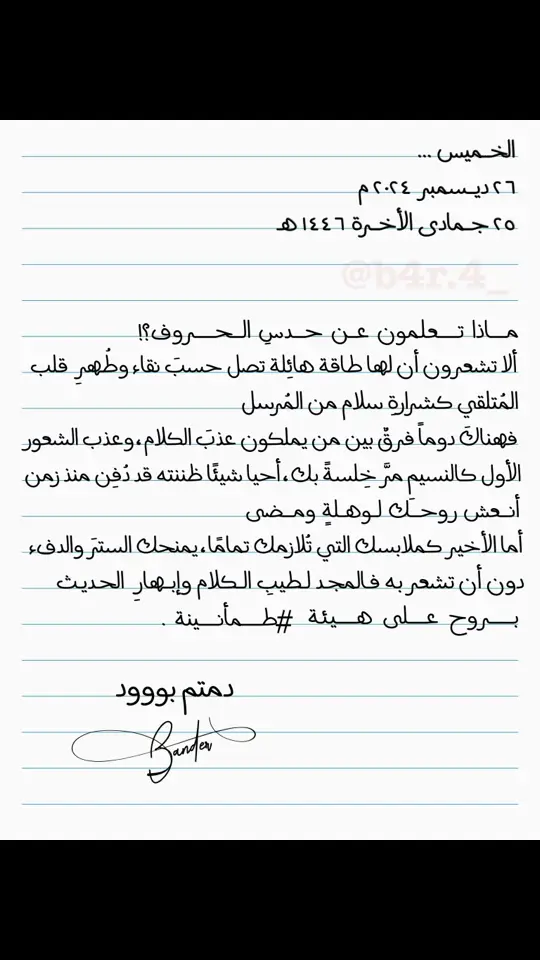 الخميس ...
٢٦ ديسمبر ٢٠٢٤ م
٢٥ جمادى الأخرة ١٤٤٦ هـ
@b4r.4_
ماذا تعلمون عن حدسِ الحروف؟!
ألا تشعرون أن لها طاقة هائِلة تصل حسبَ نقاء وطُهرِ قلب
المُتلقي كشرارةِ سلام من المُرسل
فهناكَ دوماً فرقٌ بين من يملكون عذبَ الكلام، وعذب الشعور
الأول كالنسيمِ مرَّ خِلسةً بك، أحيا شيئًا ظننته قد دُفِن منذ زمن
أنعش روحَك لوهلةٍ ومضى
أما الأخير كملابسك التي تُلازمك تمامًا، يمنحك السترَ والدفء
دون أن تشعر به فالمجد لطيبِ الكلام وإبهارِ الحديث
بروح على هيئة #طمأنينة .
دمتم بوووود
Bander